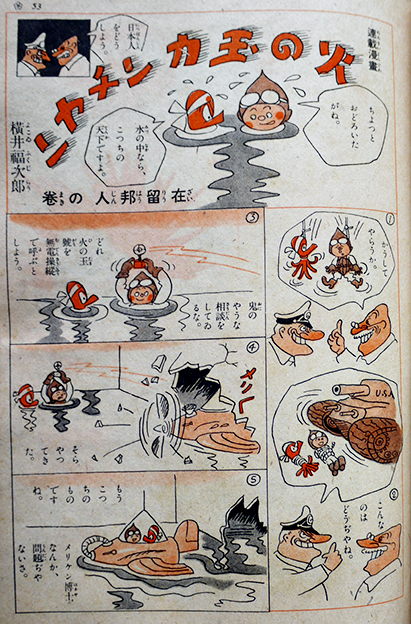 53
連載漫畫
火の玉カンチャン
横井福次郎
よこゐふくじらう
在留邦人の巻
日本人をどうしよう。
ちよつとおどろいたがね。
水の中なら、こつちの天下ですよ。
①
かうしてやらうか。
②
U.S.A
こんなのはどうぢやね。
③
鬼のやうな相談をしてゐるな。
どれ火の玉號を無電操縦で呼ぶとしよう。
④
メリ
そらやつてきた。
⑤
もうこつちのものですね
メリケン博士なんか、問題ぢやないさ。